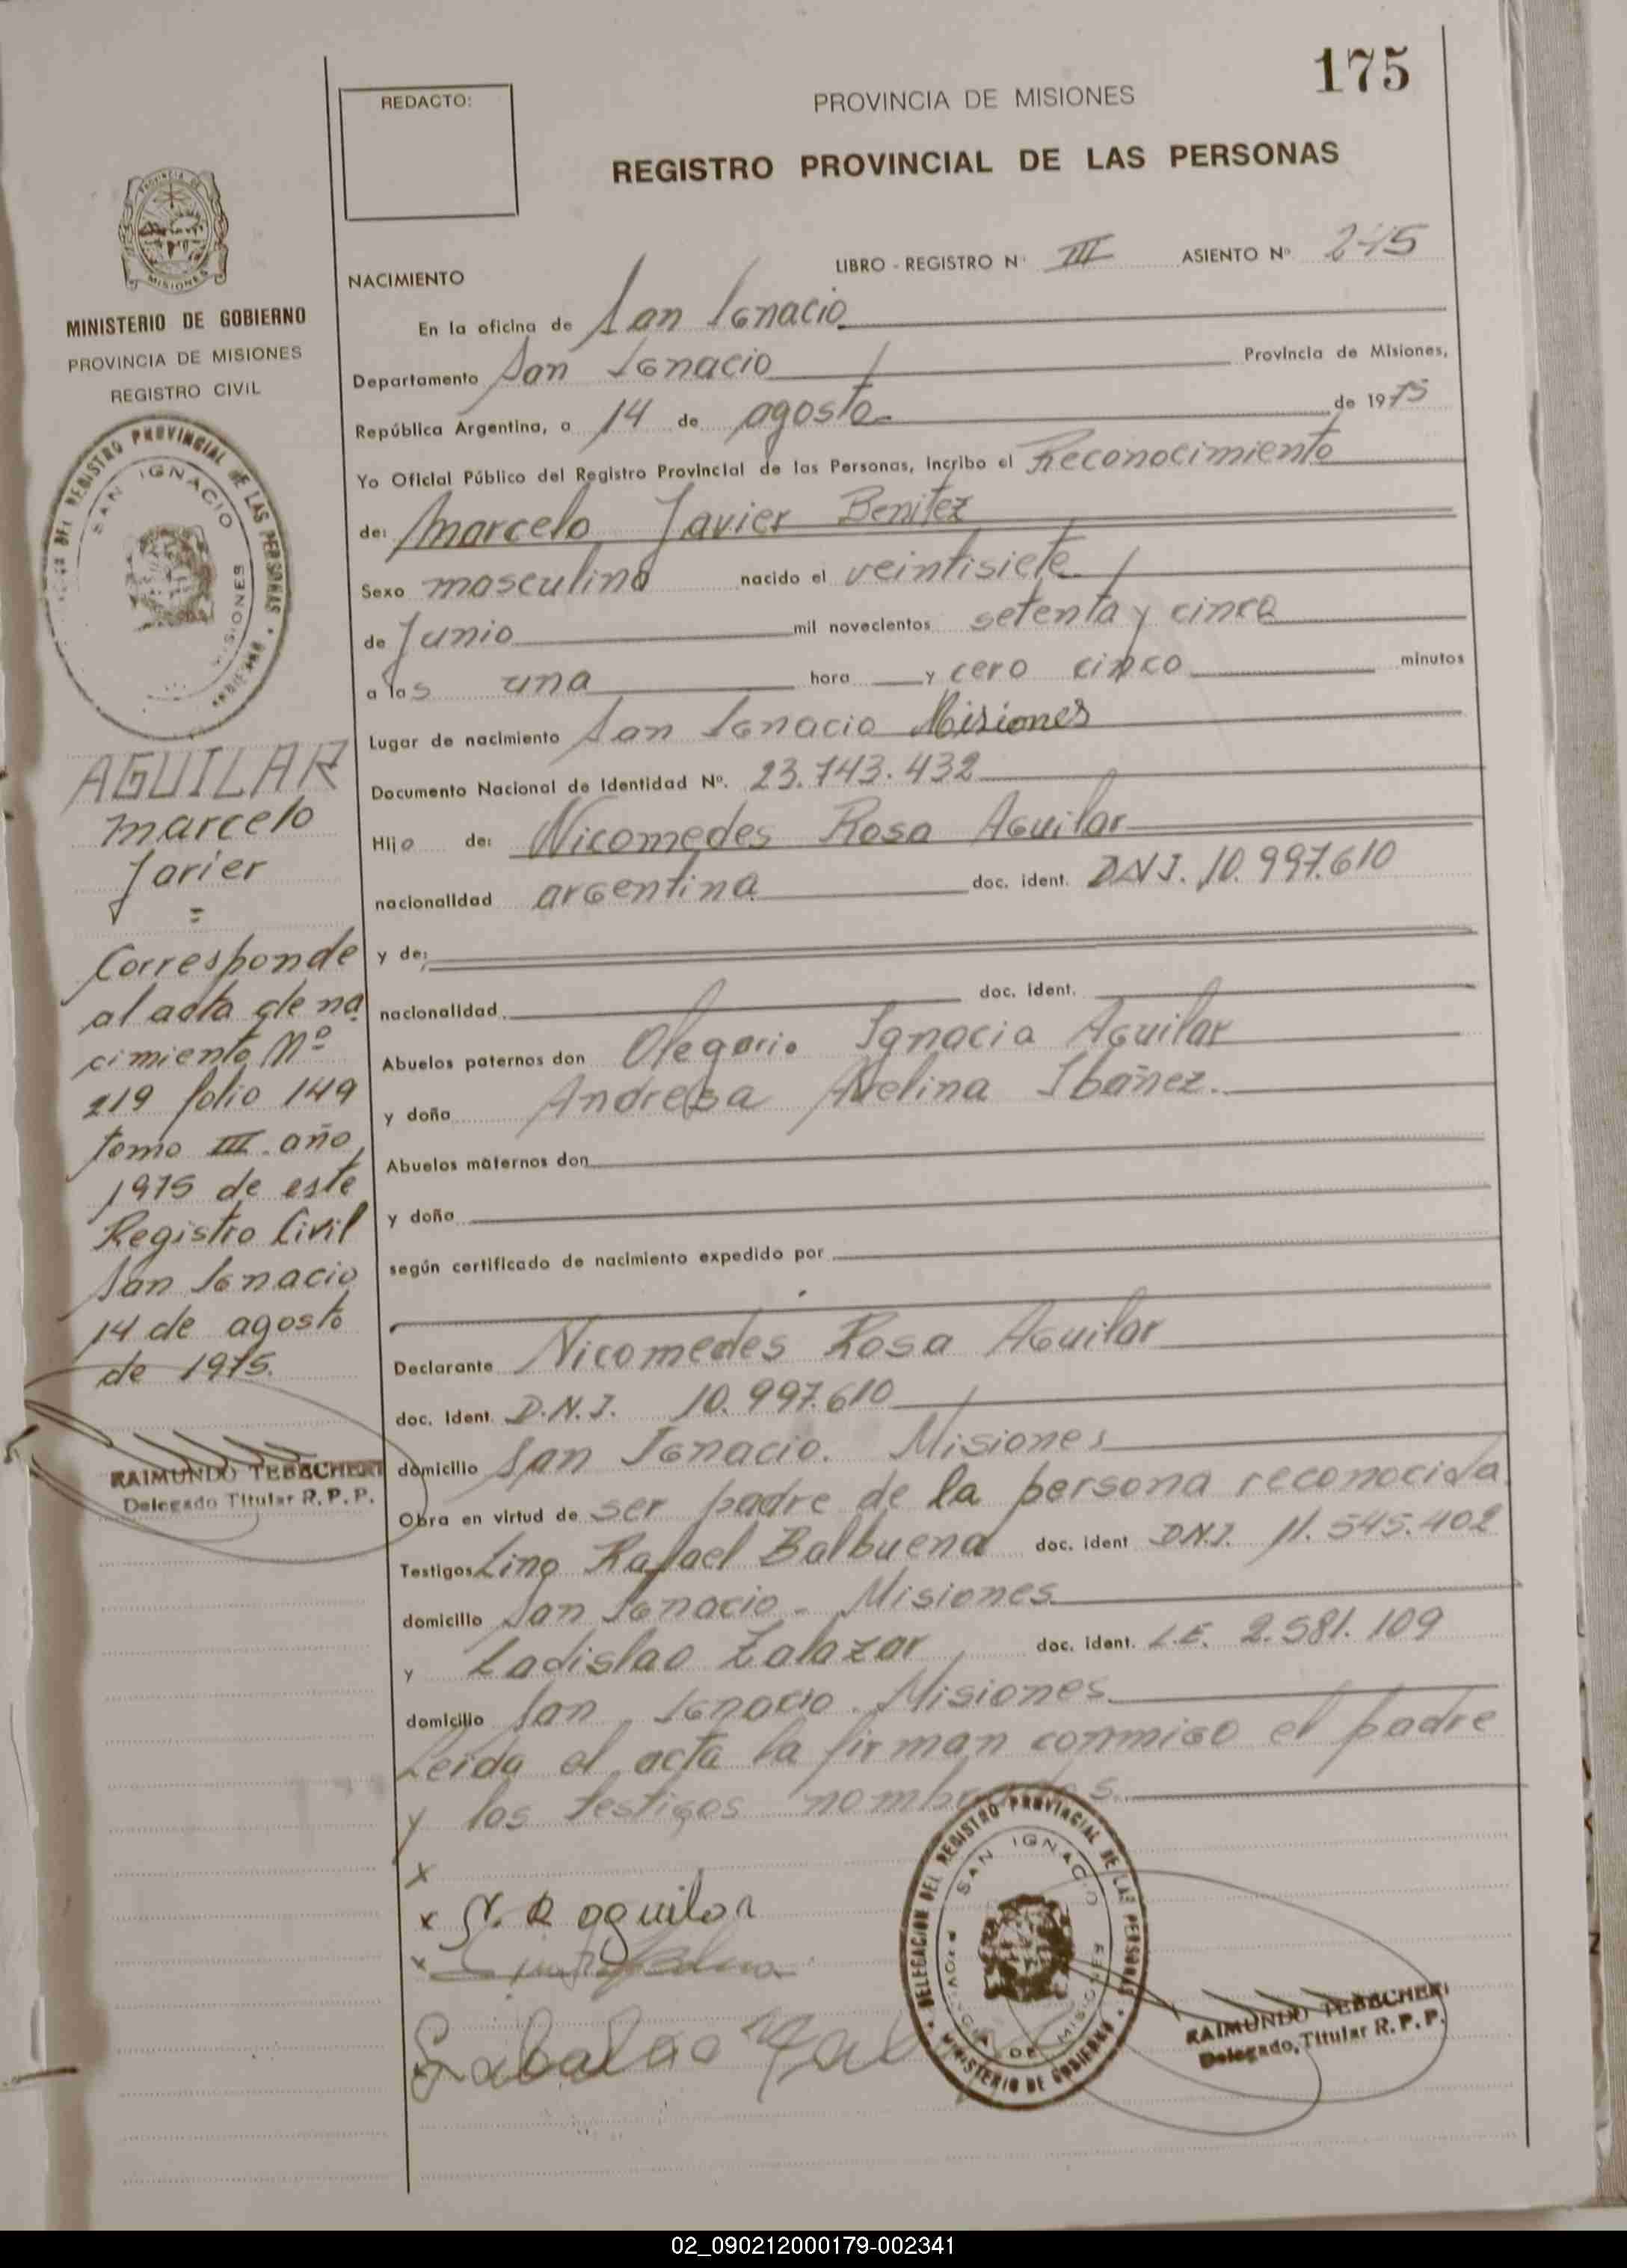 175
REDACTO:
PROVINCIA DE MISIONES
REGISTRO PROVINCIAL DE LAS PERSONAS
LIBRO - REGISTRO Nº III ASIENTO Nº 245
NACIMIENTO
En la oficina de San Ignacio
Departamento San Ignacio Provincia de Misiones,
República Argentina, a 14 de agosto de 1975
Yo Oficial Público del Registro Provincial de las Personas, incribo el Reconocimiento
de: Marcelo Javier Benitez
Sexo masculino nacido el veintisiete
de Junio mil novecientos setenta y cinco
a las una hora y cero cinco minutos
Lugar de nacimiento San Ignacio Misiones
Documento Nacional de Identidad Nº. 23.743.432
Hijo de: Nicomedes Rosa Aguilar
nacionalidad argentina doc. ident. D.N.I. 10.997.610
y de:
nacionalidad doc. ident.
Abuelos paternos don Olegario Ignacia Aguilar
y doña Andresa Avelina Ibáñez.
Abuelos maternos don
y doña
según certificado de nacimiento expedido por
Declarante Nicomedes Rosa Aguilar
doc. ident. D.N.I. 10.997.610
domicilio San Ignacio. Misiones
Obra en virtud de ser padre de la persona reconocida.
Testigos Lino Rafael Balbuena doc. ident D.N.I. 11.545.402
domicilio San Ignacio - Misiones
y Ladislao Zalazar doc. ident. L.E. 2.581.109
domicilio San Ignacio. Misiones
Leída el acta la firman conmigo el padre
y los testigos nombrados.
x
x N. R aguilar
x
DELEGACION DEL REGISTRO PROVINCIAL DE LAS PERSONAS
SAN IGNACIO
PROVINCIA DE MISIONES
MINISTERIO DE GOBIERNO
RAIMUNDO TEBECHERI
Delegado Titular R. P. P.
PROVINCIA DE
MISIONES
MINISTERIO DE GOBIERNO
PROVINCIA DE MISIONES
REGISTRO CIVIL
DEL REGISTRO PROVINCIAL DE LAS PERSONAS
SAN IGNACIO
MISIONES
AGUILAR
Marcelo
Javier
=
Corresponde
al acta de na
cimiento Nº
219 folio 149
tomo III. año
1975 de este
Registro Civil
San Ignacio
14 de agosto
de 1975.
RAIMUNDO TEBECHERI
Delegado Titular R. P. P.
02_090212000179-002341